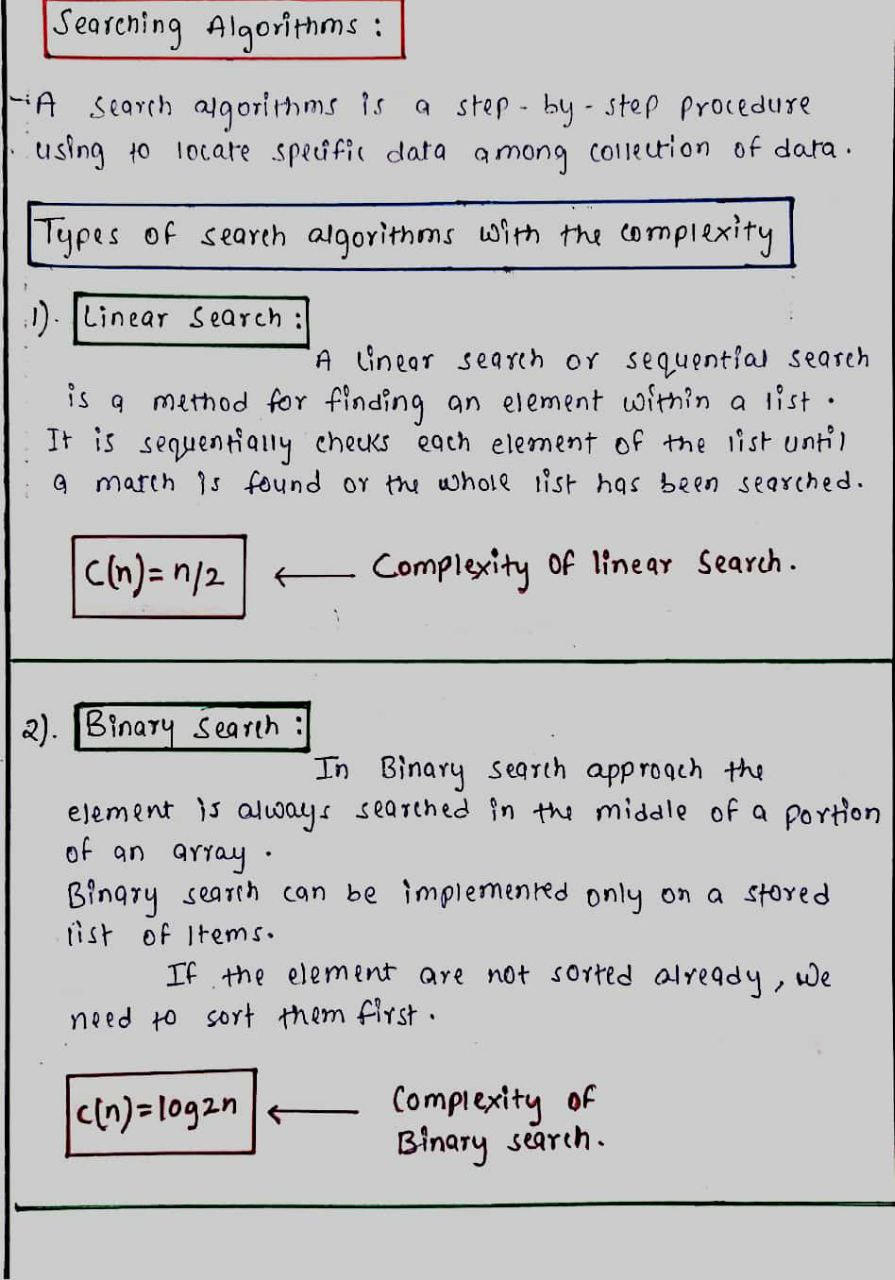 Searching Algorithms :
A search algorithms is a step - by - step procedure
using to locate specific data among collection of data.
Types of search algorithms with the complexity
1). Linear Search :
A linear search or sequential search
is a method for finding an element within a list.
It is sequentially checks each element of the list until
a match is found or the whole list has been searched.
C(n)= n/2 ← Complexity of linear Search.
2). Binary Search :
In Binary search approach the
element is always searched in the middle of a portion
of an array.
Binary search can be implemented only on a stored
list of Items.
If the element are not sorted already, we
need to sort them first.
C(n)=log2n ← Complexity of
Binary search.